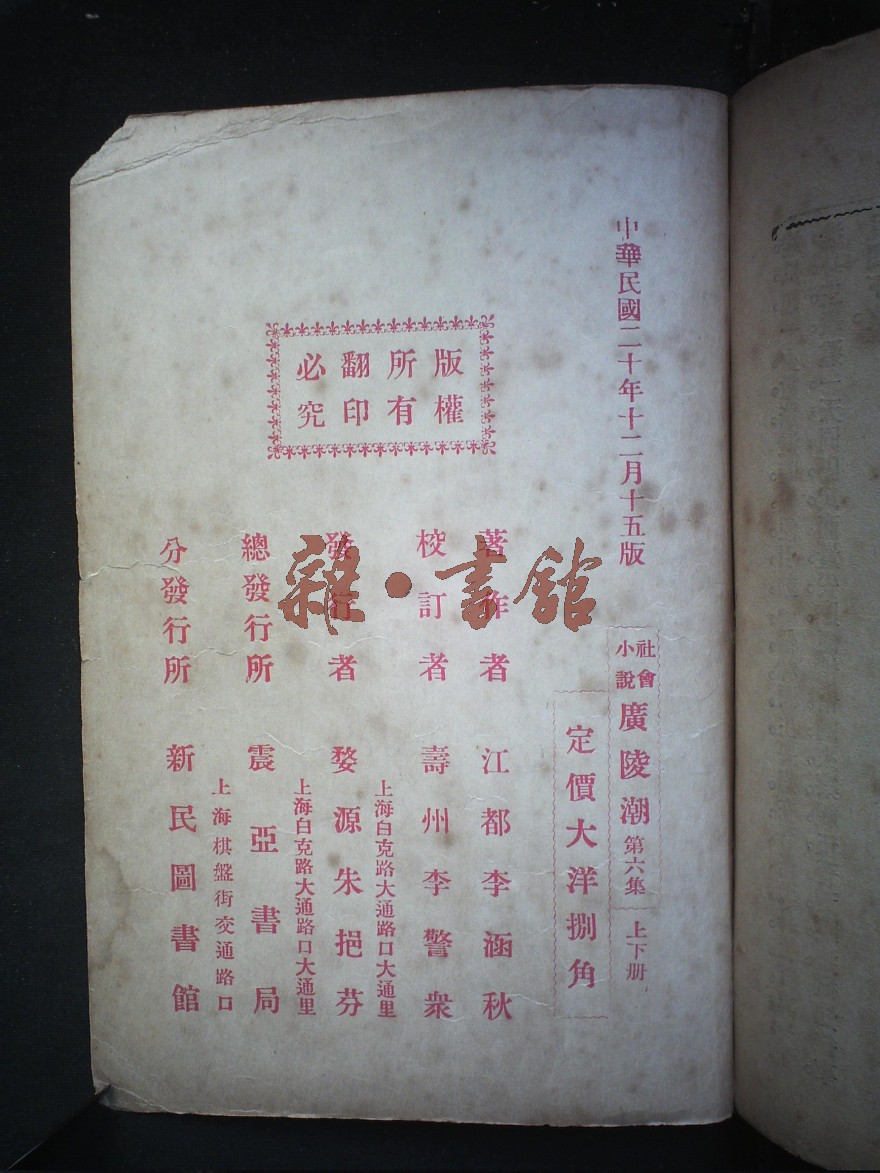 中華民國二十年十二月十五版
版權
所有
翻印
必究
社會
小說
廣陵潮 第六集 上下册
定價大洋捌角
著作者 江都李涵秋
校訂者 壽州李警衆
上海白克路大通路口大通里
發行者 婺源朱挹芬
上海白克路大通路口大通里
總發行所 震亞書局
上海棋盤街交通路口
分發行所 新民圖書館
雜·書館